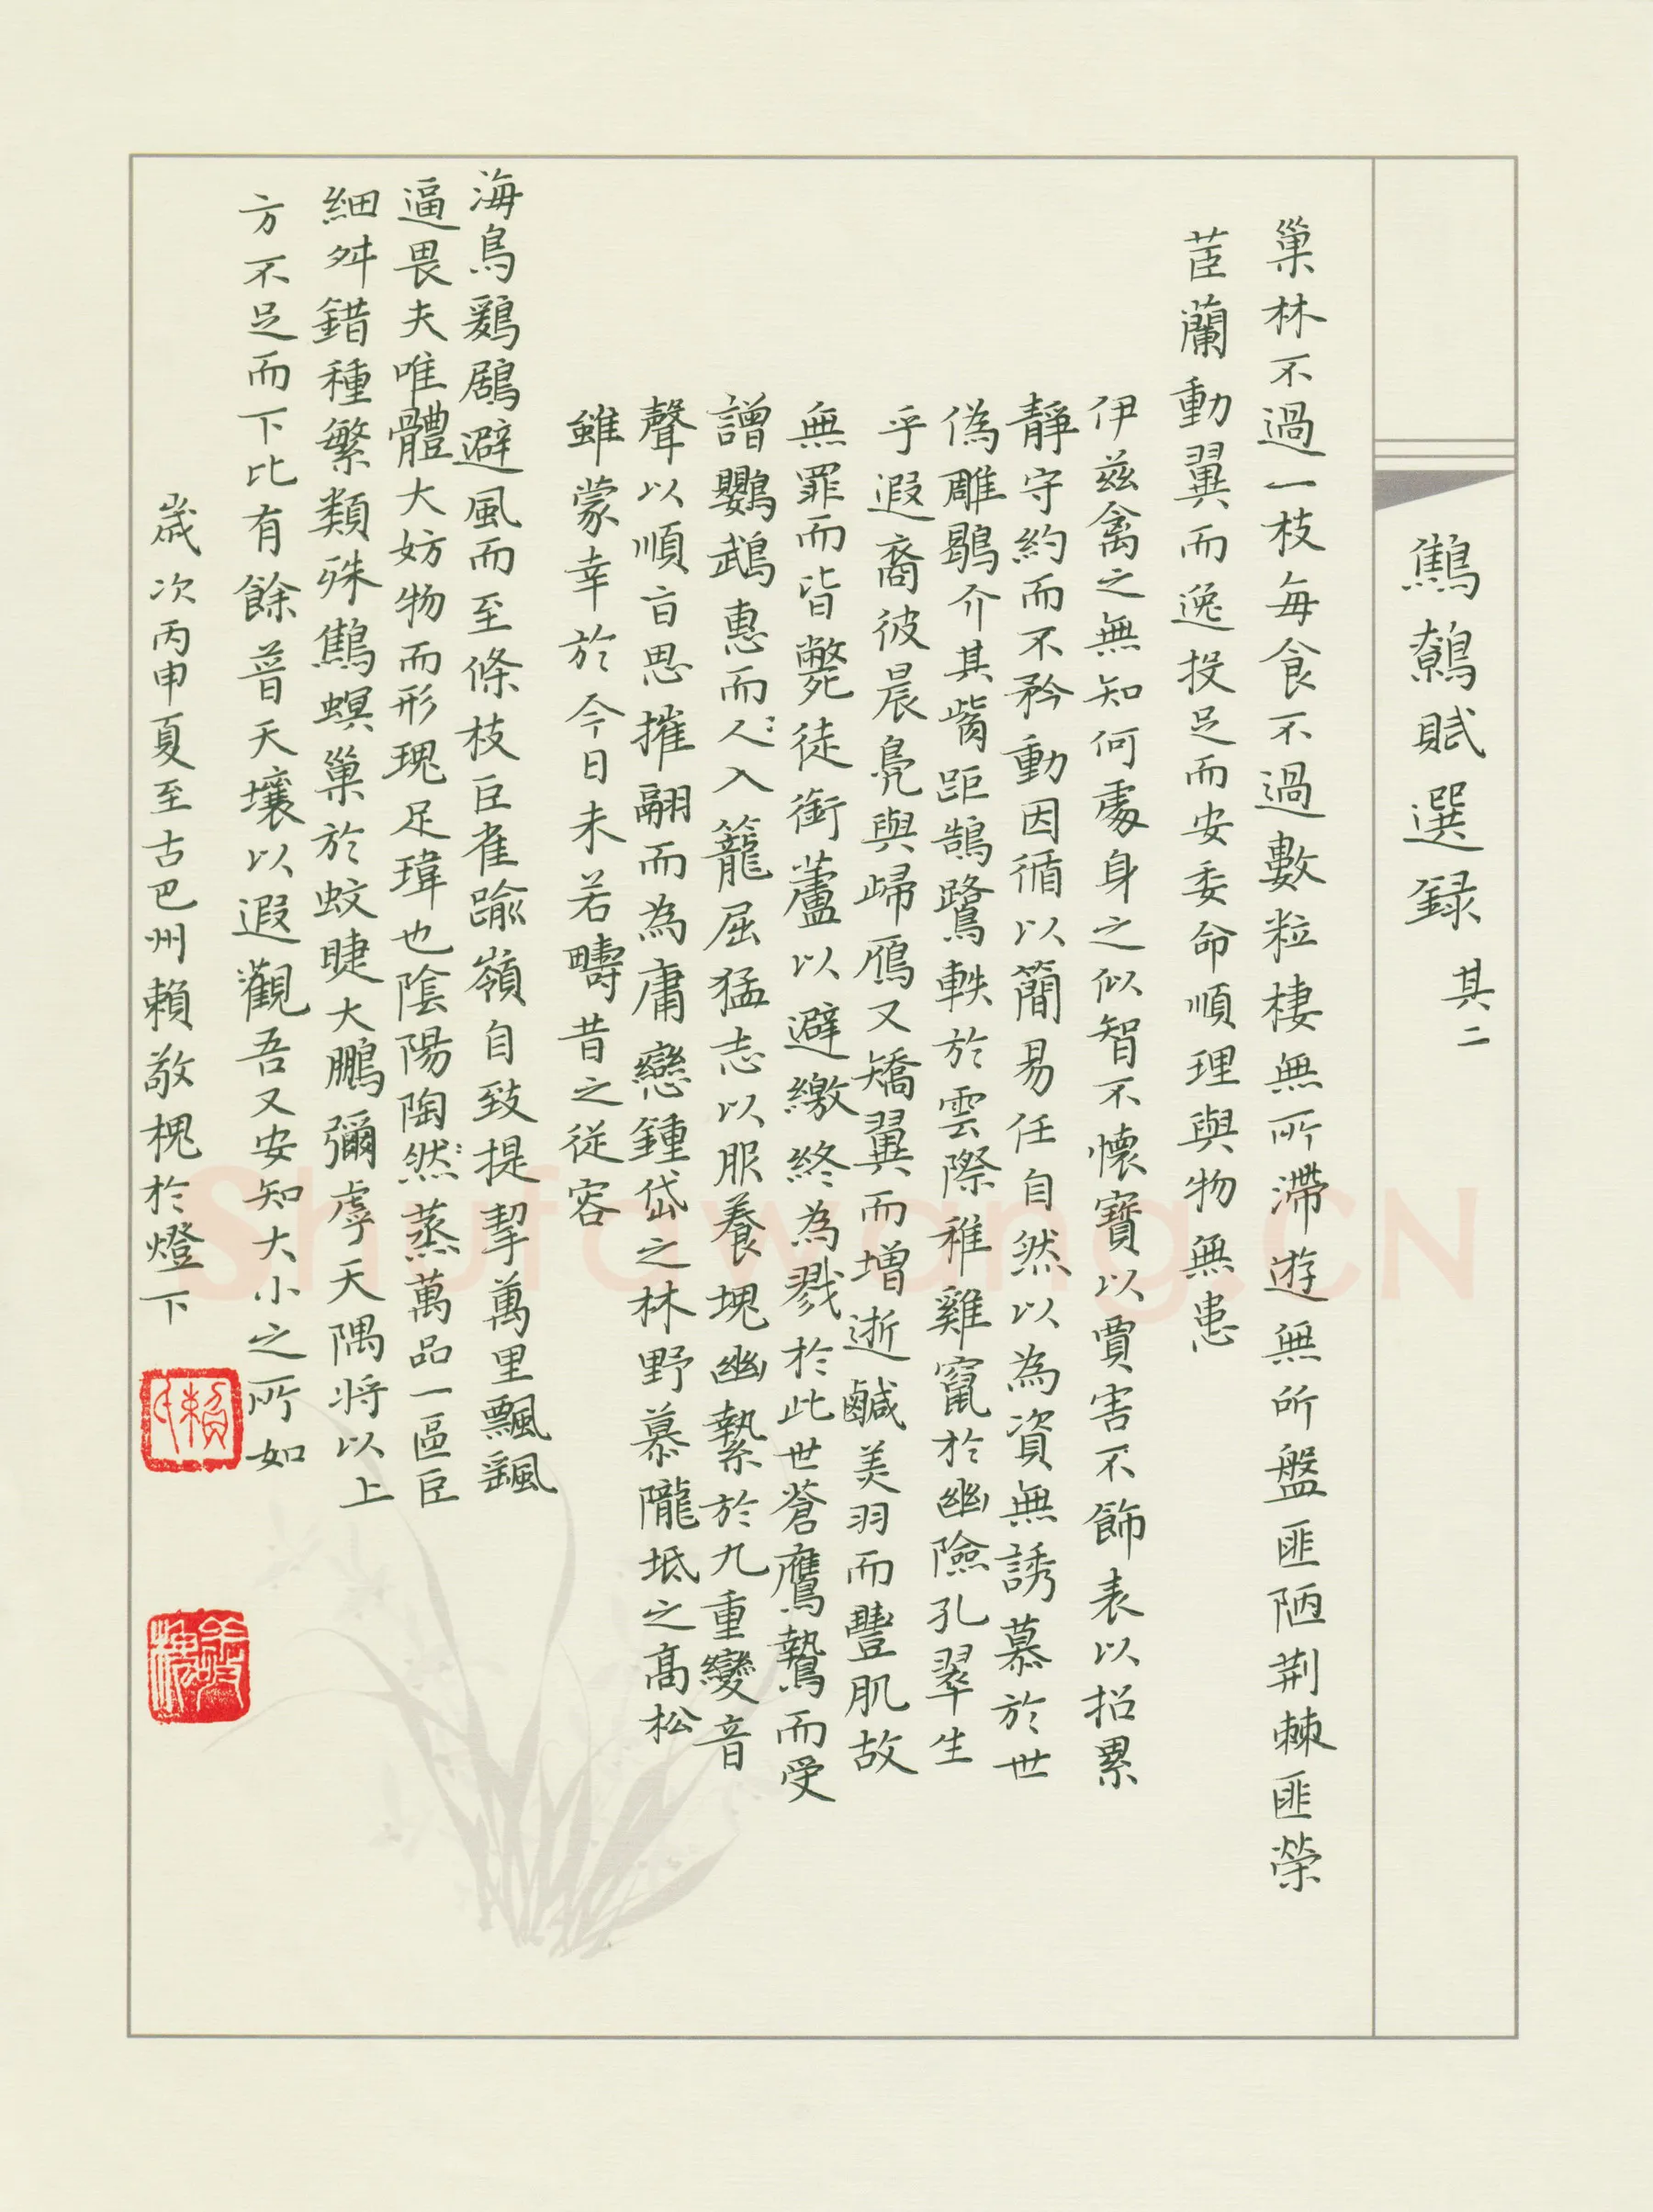 鷦鷯賦選録 其二
巢林不過一枝每食不過數粒棲無所滯遊無所盤匪陋荆棘匪榮
茞蘭動翼而逸投足而安委命順理與物無患
伊茲禽之無知何處身之似智不懷寶以賈害不飾表以招累
靜守約而不矜動因循以簡易任自然以為資無誘慕於世
偽雕鶡介其觜距鵠鷺軼於雲際稚雞竄於幽險孔翠生
乎遐裔彼晨鳧與歸鴈又矯翼而增逝鹹美羽而豐肌故
無罪而皆斃徒銜蘆以避繳終為戮於此世蒼鷹鷙而受
譄鸚鵡惠而人入籠屈猛志以服養塊幽縶於九重變音
聲以順言思摧翮而為庸戀鍾岱之林野慕隴坻之高松
雖蒙幸於今日未若疇昔之從容
海鳥鶢鶋避風而至條枝巨雀踰嶺自致提挈萬里飄颻
逼畏夫唯體大妨物而形瑰足瑋也陰陽陶然蒸萬品一區巨
細舛錯種繁類殊鷦螟巢於蚊睫大鵬彌虖天隅将以上
方不足而下比有餘普天壤以遐觀吾又安知大小之所如
歲次丙申夏至古巴州賴敬槐於燈下
Shufawang.CN